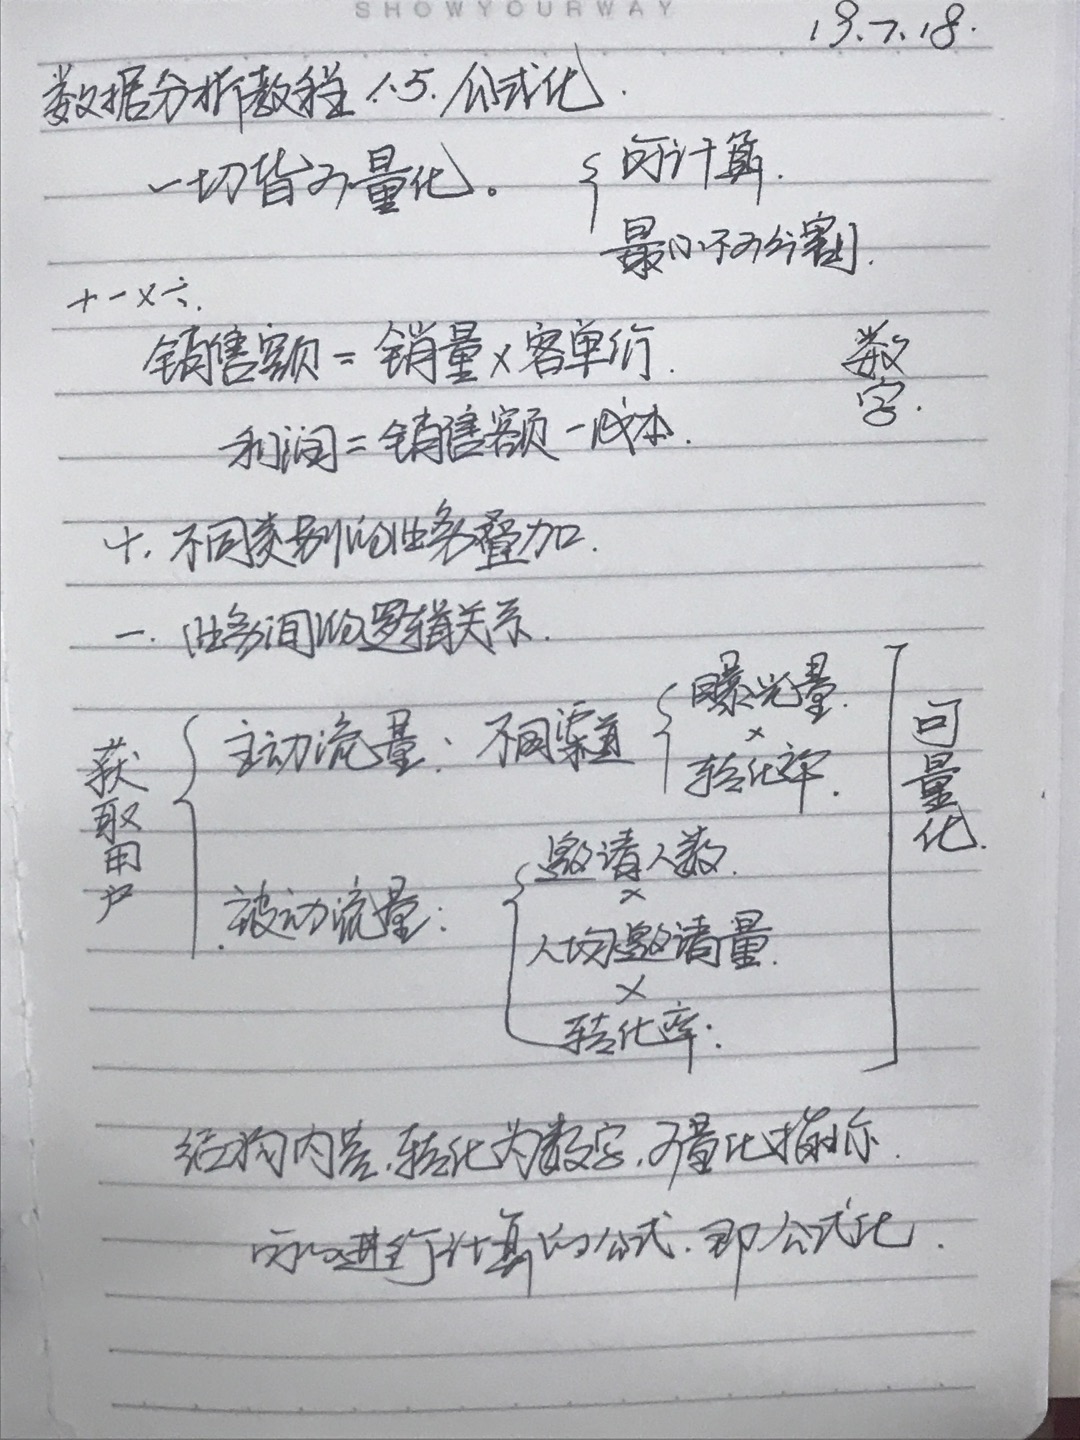 SHOWYOURWAY
19.7.18.
数据分析教程 1.5. 公式化.
一切皆可量化。 { 可计算.
最小不可分割.
+ - × ÷.
销售额 = 销量 × 客单价.
数字.
利润 = 销售额 - 成本.
+. 不同类别的业务叠加.
一. 业务间的逻辑关系.
获取用户
主动流量: 不同渠道
曝光量.
×
转化率.
被动流量:
邀请人数.
×
人均邀请量.
×
转化率.
可量化.
结构内容, 转化为数字, 可量化指标.
可以进行计算的公式. 即公式化.